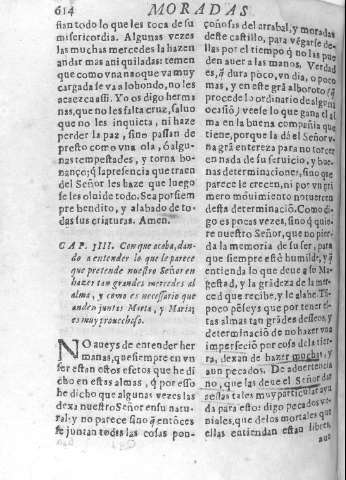 614 MORADAS
fian todo lo que les toca de su
misericordia. Algunas vezes
las muchas mercedes la hazen
andar mas aniquiladas: temen
que como vna nao que va muy
cargada se va a lo hondo, no les
acaezca assi. Yo os digo herma
nas, que no les falta cruz, saluo
que no les inquieta, ni haze
perder la paz, sino passan de
presto como vna ola, ó algu-
nas tempestades, y torna bo-
nança; q̃ la presencia que traen
del Señor les haze que luego
se les oluide todo. Sea por siem
pre bendito, y alabado de to-
das sus criaturas. Amen.
CAP. IIII. Con que acaba, dan-
do a entender lo que le parece
que pretende nuestro Señor en
hazer tan grandes mercedes al
alma, y como es necessario que
anden juntas Marta, y Maria;
es muy prouechoso.
NO aueys de entender her
manas, que siempre en vn
ser estan estos efetos que he di
cho en estas almas, q̃ por esso
he dicho que algunas vezes las
dexa nuestro Señor en su natu
ral: y no parece sino q̃ entõces
se juntan todas las cosas pon-
çoñosas del arrabal, y moradas
deste castillo, para vẽgarse de-
llas por el tiempo q̃ no las pue
den auer a las manos. Verdad
es, q̃ dura póco, vn dia, o poco
mas, y en este grã alboroto (q̃
procede lo ordinario de alguna
ocasiõ) veese lo que gana el al
ma en la buena compañia que
tiene, porque la dá el Señor v-
na grã entereza para no torcer
en nada de su seruicio, y bue-
nas determinaciones, sino que
parece le crecen, ni por vn pri
mero mouimiento no tuercen
desta determinació. Como di-
go es pocas vezes, sino q̃ quie-
re nuestro Señor, que no pier-
da la memoria de su ser, para
que siempre esté humilde, y q̃
entienda lo que deue a su Ma-
gestad, y la grãdeza de la mer-
ced que recibe, y le alabe. Tã-
poco pẽseys que por tener es-
tas almas tan grãdes desseos, y
determinació de no hazer vna
imperfeció por cosa de la tie-
rra, dexan de hazer muchas, y
aun pecados. De aduertencia
no, que las deue el Señor dar
a estas tales muy particular ayu
da para esto: digo pecados ve-
niales, que de los mortales que
ellas entiendan estan libres,
aun